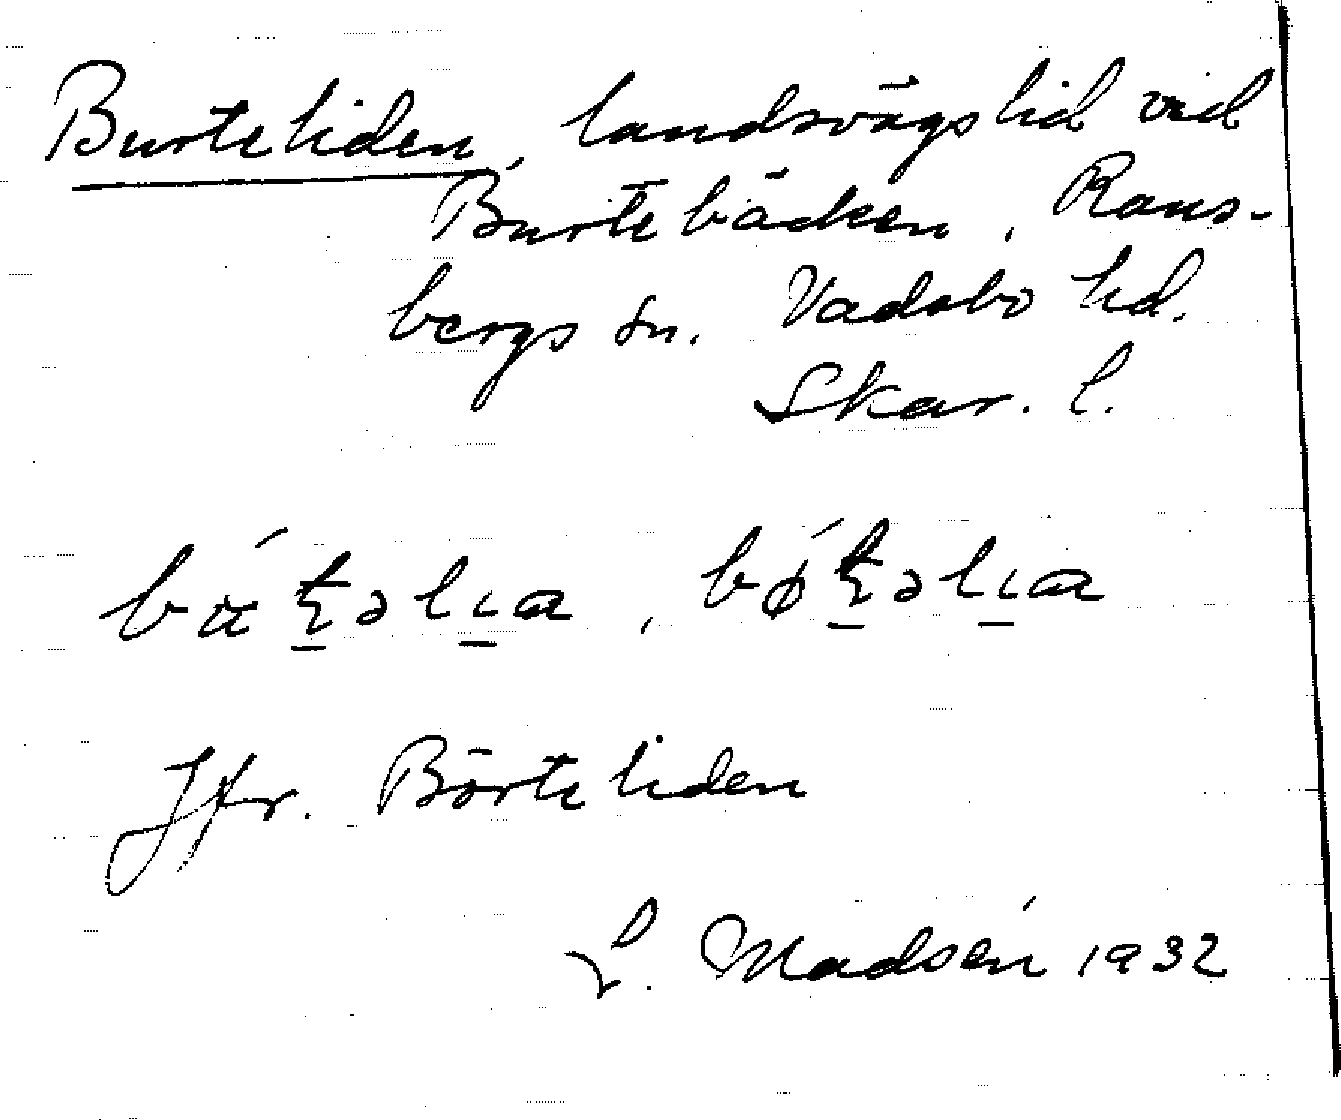 Burteliden, landsvägslid vid
Burtebäcken, Rans-
bergs sn. Vadsbo hd.
Skar. l.
Jfr. Börteliden
L. Madsén 1932